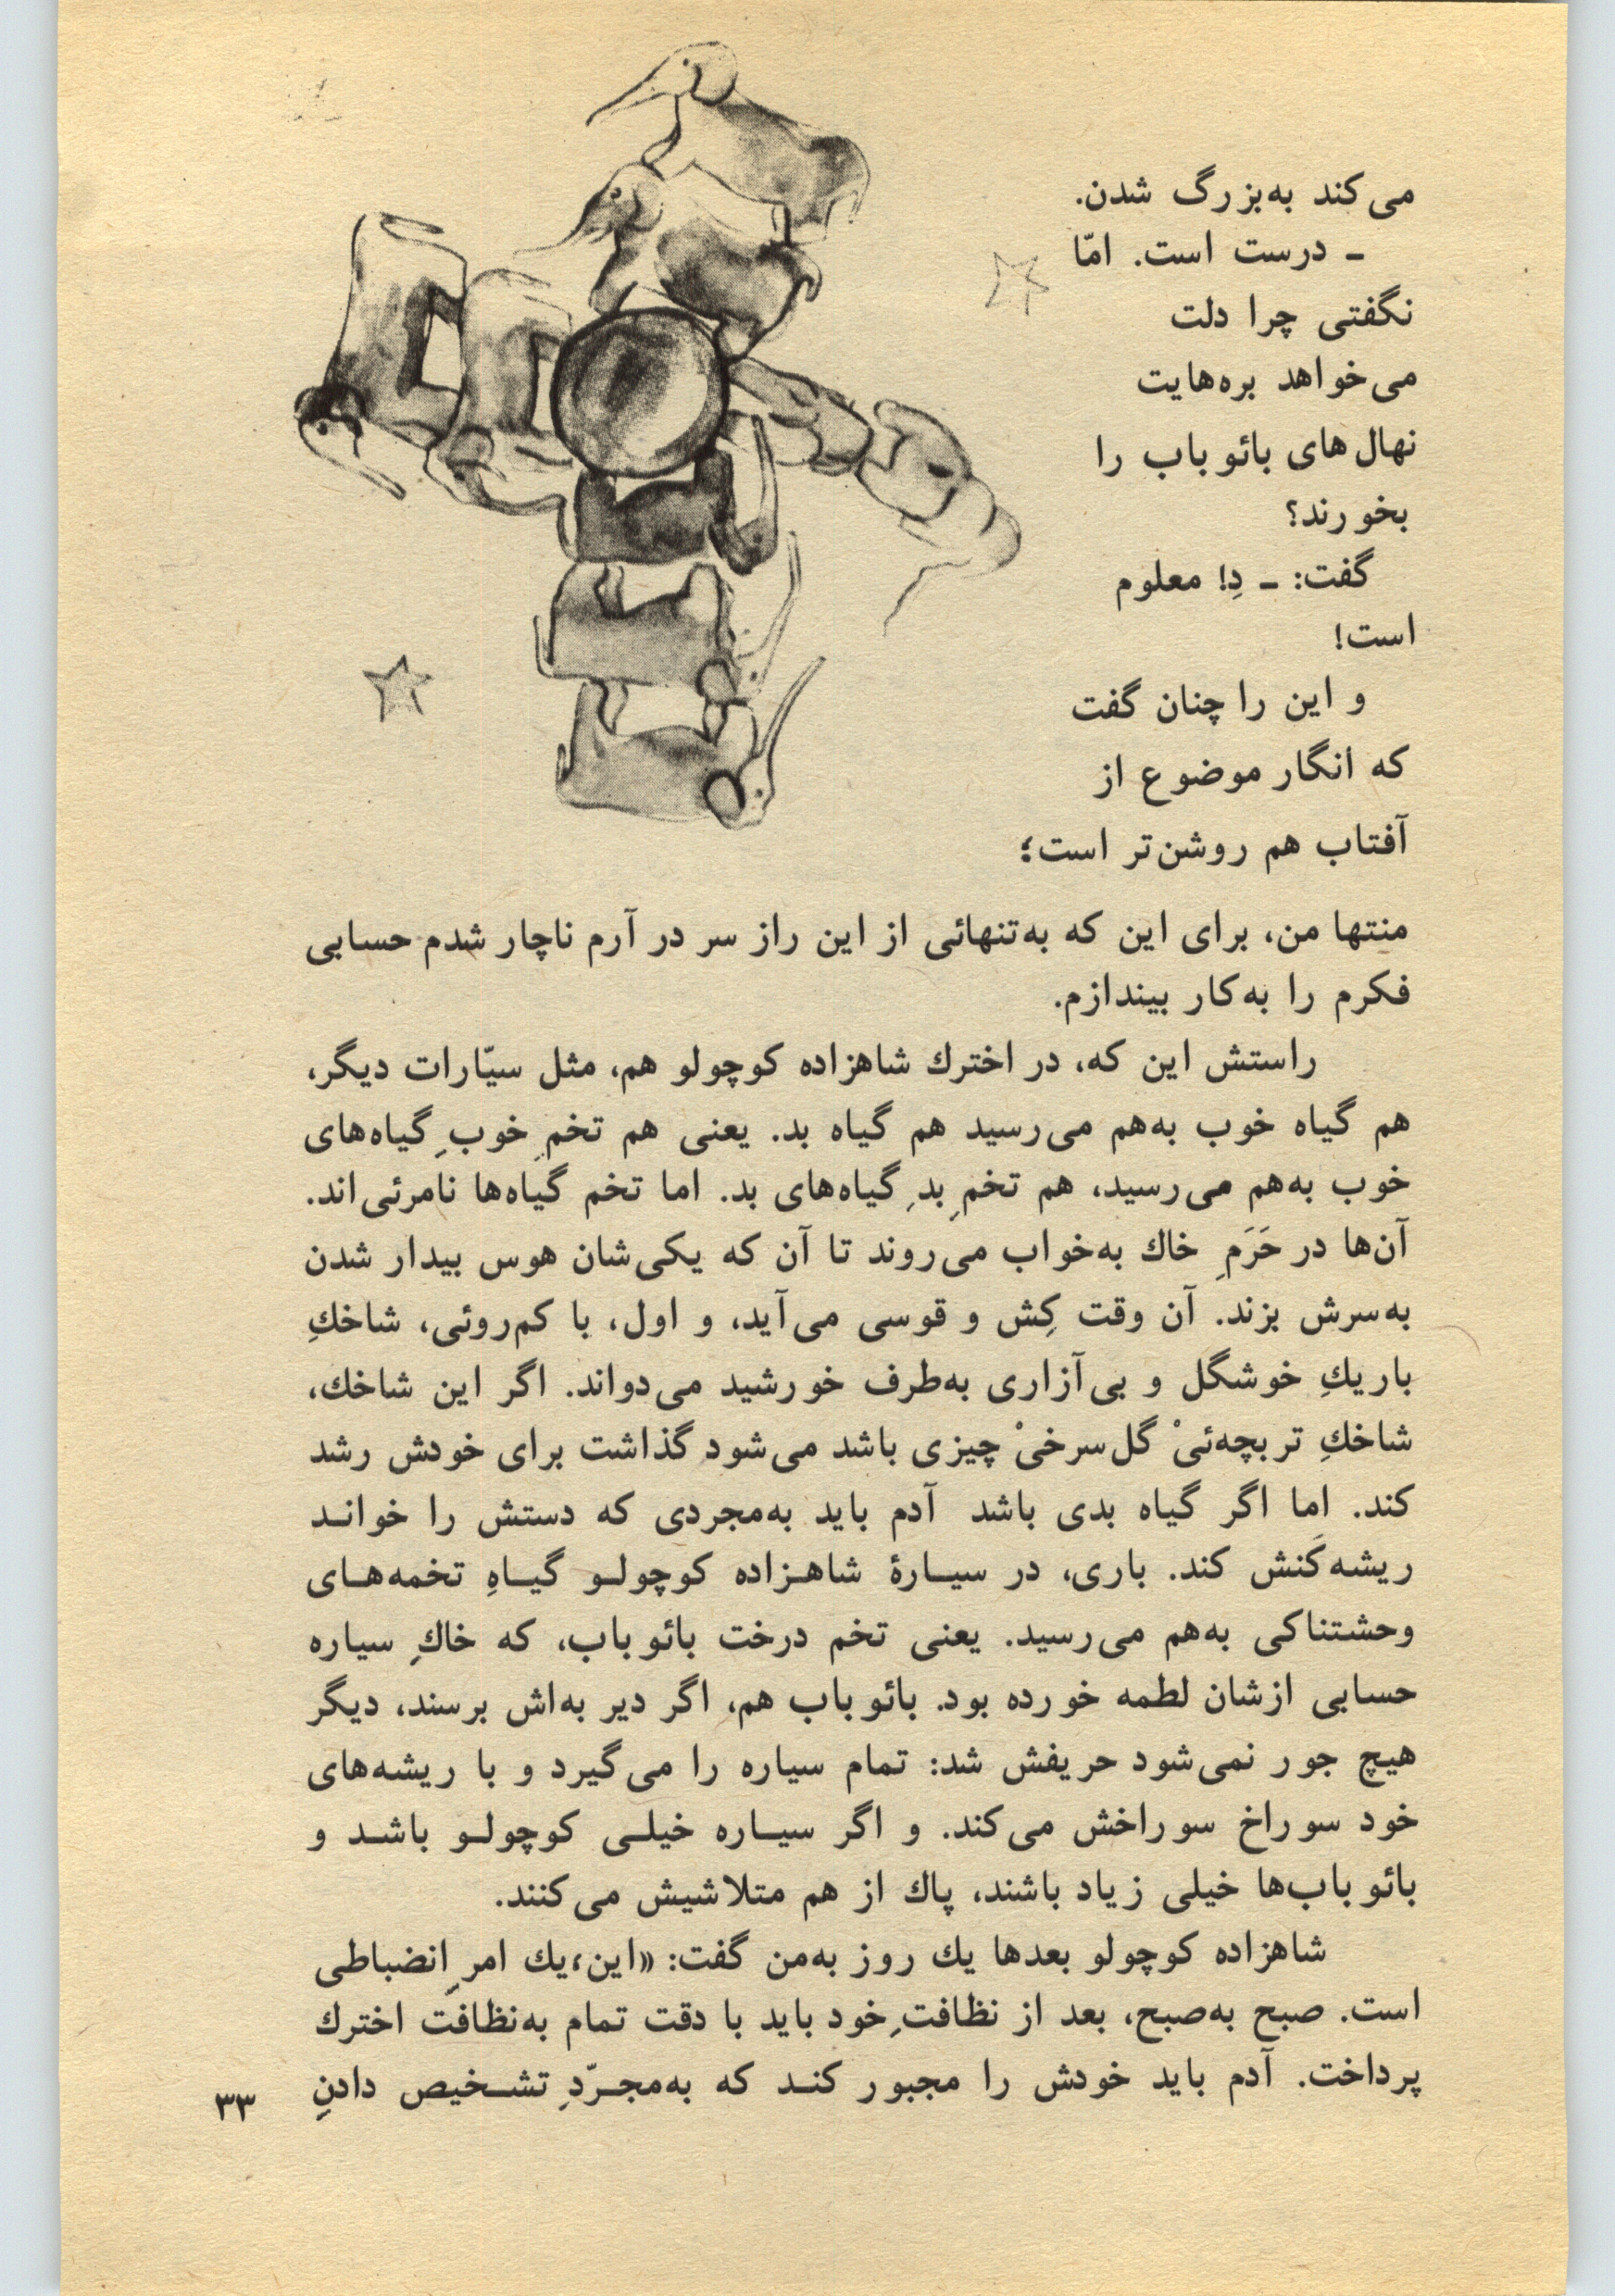 می‌کند به‌بزرگ شدن.
ـ درست است. امّا
نگفتی چرا دلت
می‌خواهد بره‌هایت
نهال‌های بائوباب را
بخورند؟
گفت: ـ دِ! معلوم
است!
و این را چنان گفت
که انگار موضوع از
آفتاب هم روشن‌تر است؛
منتها من، برای این که به‌تنهائی از این راز سر در آرم ناچار شدم حسابی
فکرم را به‌کار بیندازم.
راستش این که، در اخترك شاهزاده کوچولو هم، مثل سیّارات دیگر،
هم گیاه خوب به‌هم می‌رسید هم گیاه بد. یعنی هم تخمِ خوبِ گیاه‌های
خوب به‌هم می‌رسید، هم تخمِ بدِ گیاه‌های بد. اما تخم گیاه‌ها نامرئی‌اند.
آن‌ها در حَرَمِ خاك به‌خواب می‌روند تا آن که یکی‌شان هوس بیدار شدن
به‌سرش بزند. آن وقت کِش و قوسی می‌آید، و اول، با کم‌روئی، شاخكِ
باریكِ خوشگل و بی‌آزاری به‌طرف خورشید می‌دواند. اگر این شاخك،
شاخكِ تربچه‌ئیْ گل‌سرخیْ چیزی باشد می‌شود گذاشت برای خودش رشد
کند. اما اگر گیاه بدی باشد آدم باید به‌مجردی که دستش را خوانـد
ریشه‌کَنش کند. باری، در سیــارهٔ شاهـزاده کوچولـو گیـاهِ تخمه‌هـای
وحشتناکی به‌هم می‌رسید. یعنی تخم درخت بائوباب، که خاكِ سیاره
حسابی ازشان لطمه خورده بود. بائوباب هم، اگر دیر به‌اش برسند، دیگر
هیچ جور نمی‌شود حریفش شد: تمام سیاره را می‌گیرد و با ریشه‌های
خود سوراخ سوراخش می‌کند. و اگر سیــاره خیلـی کوچولـو باشـد و
بائوباب‌ها خیلی زیاد باشند، پاك از هم متلاشیش می‌کنند.
شاهزاده کوچولو بعدها یك روز به‌من گفت: «این، یك امرِ انضباطی
است. صبح به‌صبح، بعد از نظافتِ خود باید با دقت تمام به‌نظافت اخترك
پرداخت. آدم باید خودش را مجبور کنـد که به‌مجـرّدِ تشـخیص دادنِ
۳۳